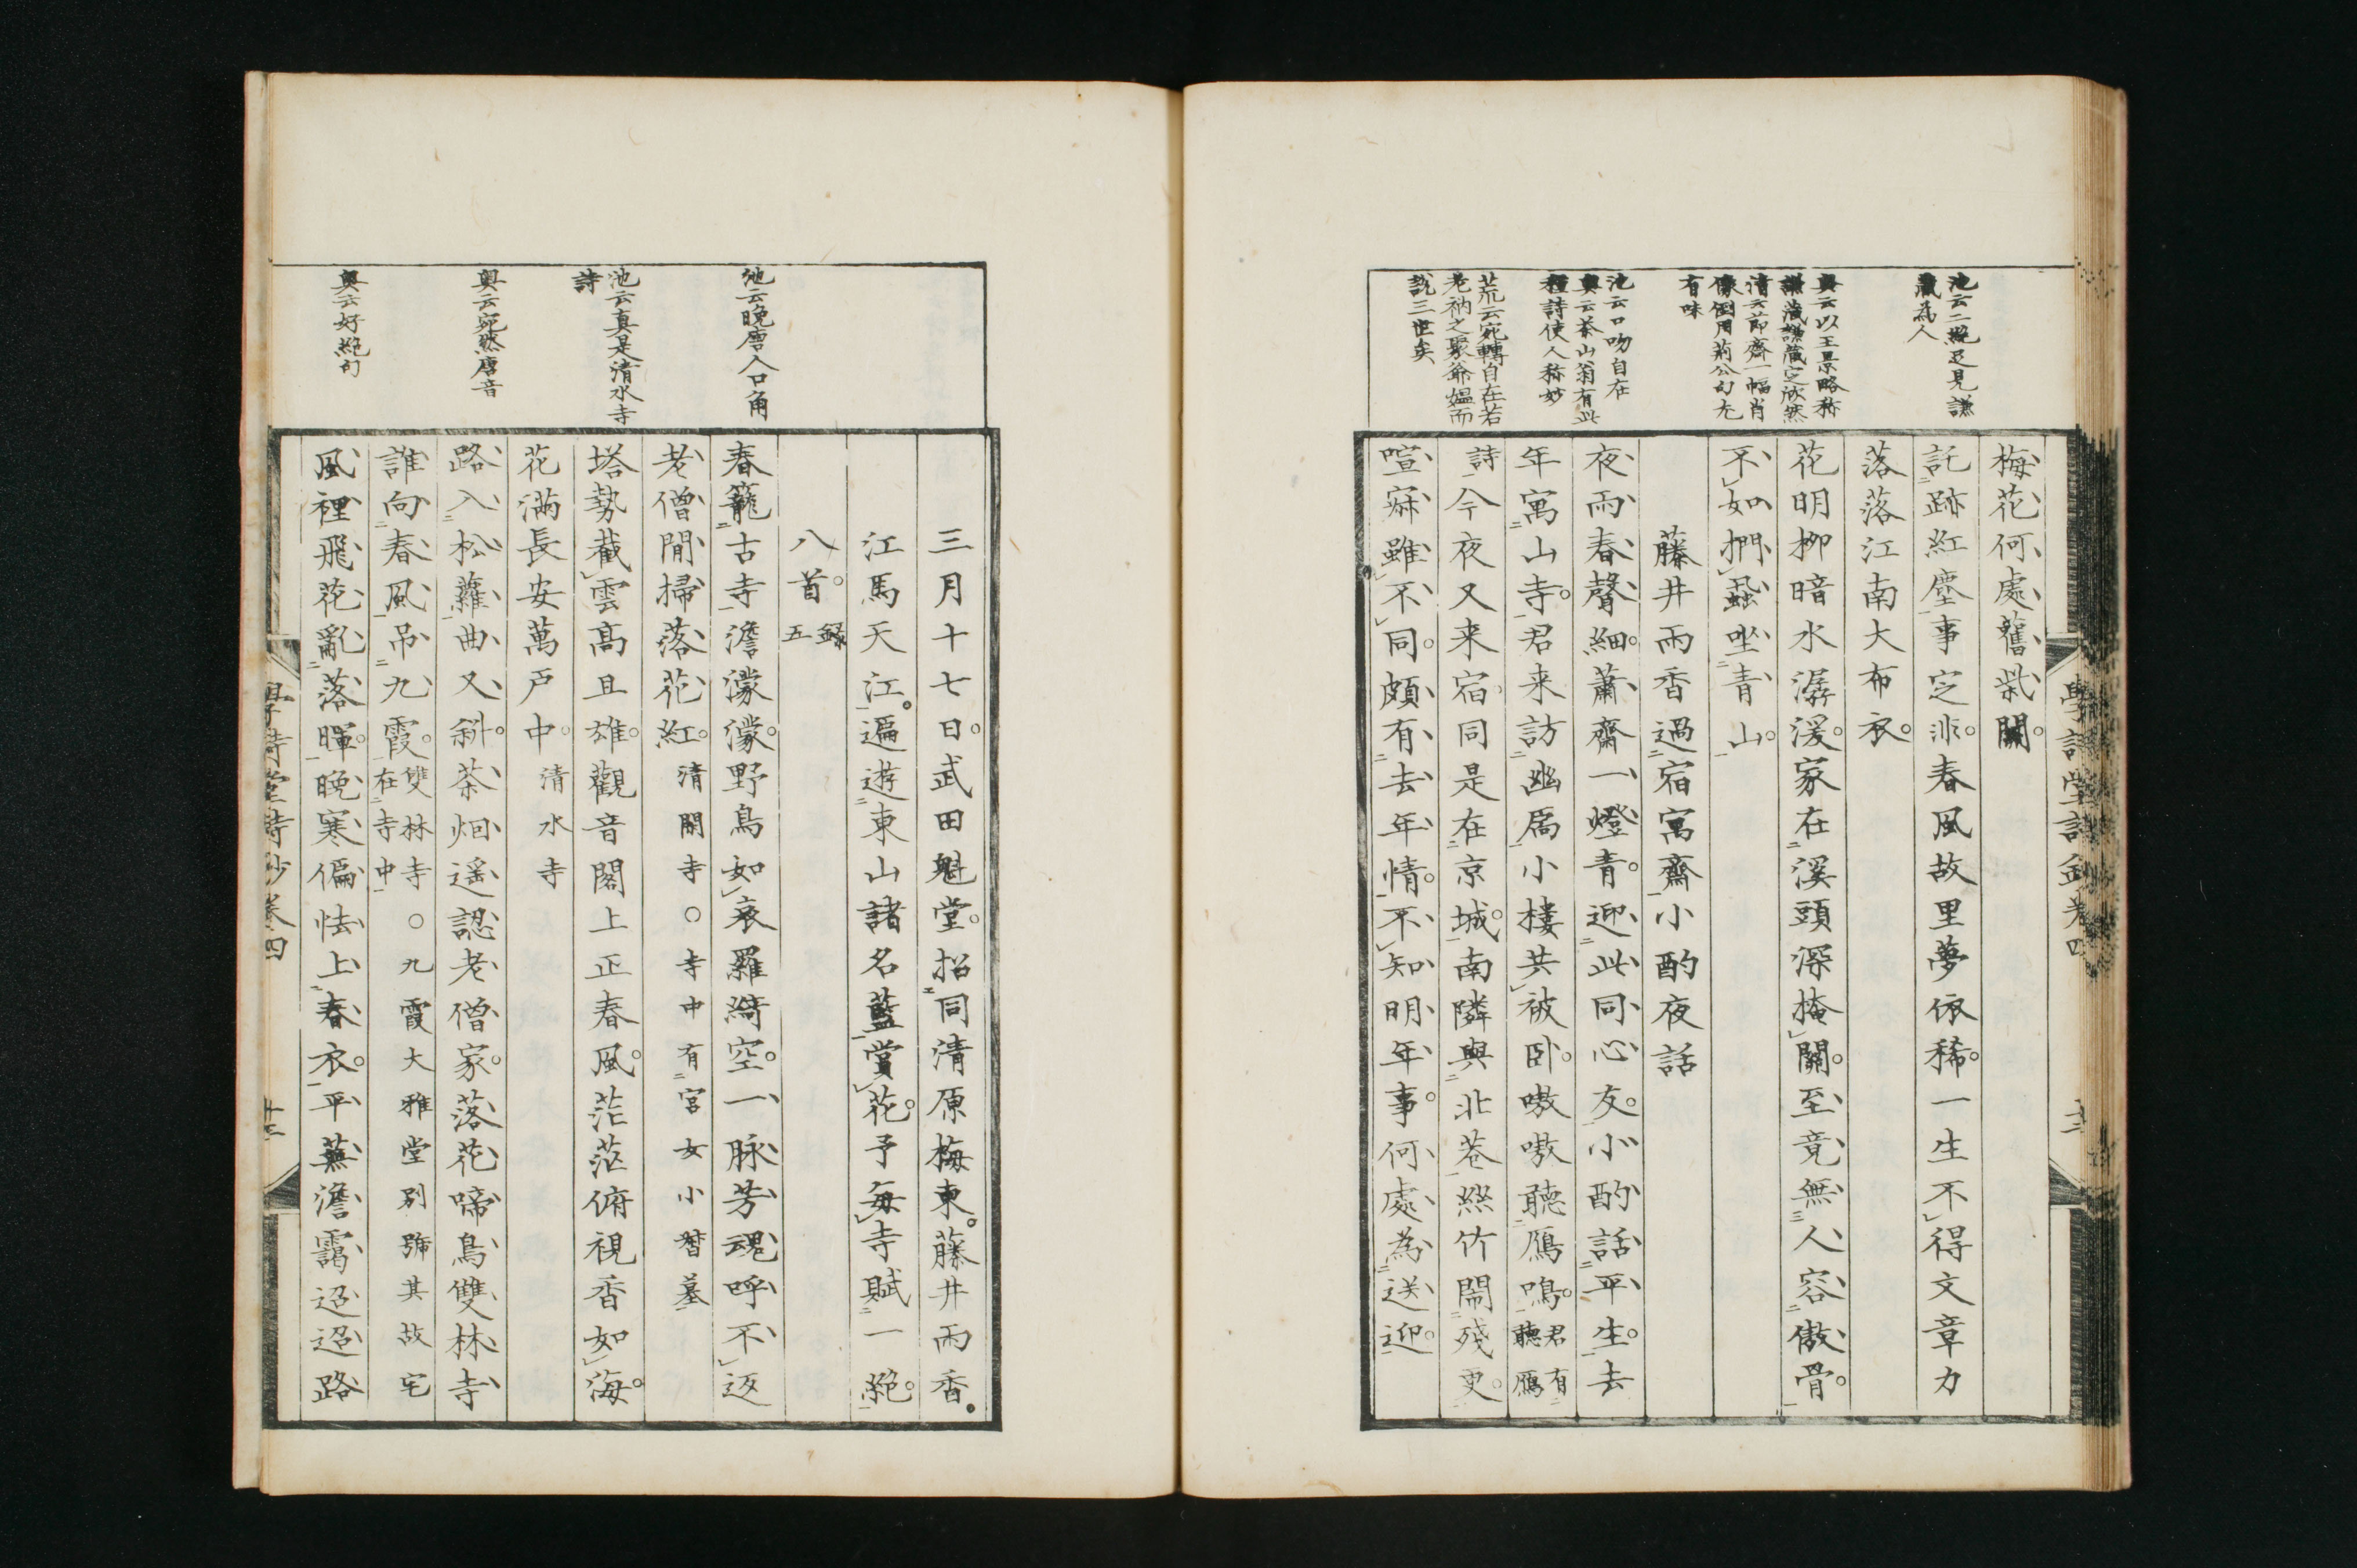 池云二絶足見謙
藏為人
奥云以王景略称
謙藏謙藏定欣然
清云節齋一幅肖
像倒用荊公句尤
有味
池云口吻自在
奥云茶山翁有此
種詩使人称妙
荒云宛轉自在若
老衲之聚爺媼而
説三世矣
梅花何處舊柴關
託跡紅塵事定非春風故里夢依稀一生不得文章力
落落江南大布衣
花明柳暗水潺湲家在溪頭深掩關至竟無人容傲骨
不如捫蝨坐青山
藤井雨香過宿寓齋小酌夜話
夜雨春聲細蕭齋一燈青迎此同心友小酌話平生去
年寓山寺君来訪幽扃小樓共被卧嗷嗷聽鴈鳴君有聽鴈
詩今夜又来宿同是在京城南隣與北巷絲竹鬧殘更
喧寂雖不同頗有去年情不知明年事何處為送迎
學詩堂詩鈔卷四
池云晩唐人口角
池云真是清水寺
詩
奥云宛然唐音
奥云好絶句
三月十七日武田魁堂招同清原梅東藤井雨香
江馬天江遍遊東山諸名藍賞花予每寺賦一絶
八首録五
春籠古寺澹濛濛野鳥如哀羅綺空一脉芳魂呼不返
老僧閒掃落花紅清閑寺〇寺中有宮女小督墓
塔勢截雲高且雄觀音閣上正春風茫茫俯視香如海
花滿長安萬戸中清水寺
路入松蘿曲又斜茶烟遥認老僧家落花啼鳥雙林寺
誰向春風吊九霞雙林寺〇九霞大雅堂別號其故宅在寺中
風裡飛花亂落暉晩寒偏怯上春衣平蕪澹靄迢迢路
學詩堂詩鈔卷四
十三